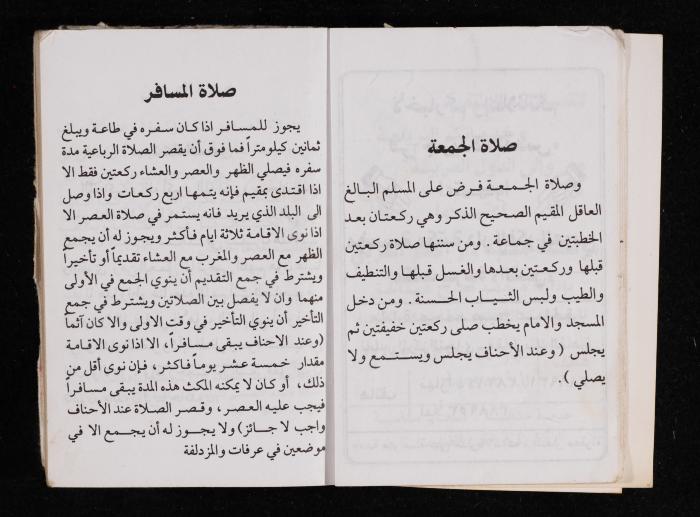 صلاة الجمعة
وصلاة الجـمـعـة فـرض على المسلم البـالغ
العاقل المقيم الصحيح الذكر وهي ركعتـان بعـد
الخطبتين في جماعة . ومن سننها صلاة ركعتين
قبلها وركعتين بعدها والغسل قبلها والتنظيف
والطيب ولبس الثيـاب الحـسنة . ومن دخل
المسجد والامام يخطب صلى ركعتين خفيفتين ثم
يجلس ( وعند الأحناف يجلس ويستـمـع ولا
يصلي ) .
صلاة المسافر
يجوز للمسافر اذا كان سفره في طاعة ويبلغ
ثمانين كيلومتراً فما فوق أن يقصر الصلاة الرباعية مدة
سفره فيصلي الظهر والعصر والعشاء ركعتين فقط الا
اذا اقتدى بمقيم فإنه يتمها اربع ركعات واذا وصل
الى البلد الذي يريد فانه يستمر في صلاة العصر الا
اذا نوى الاقامة ثلاثة ايام فأكثر ويجوز له أن يجمع
الظهر مع العصر والمغرب مع العشاء تقديماً أو تأخيراً
ويشترط في جمع التقديم أن ينوي الجمع في الأولى
منهما وان لا يفصل بين الصلاتين ويشترط في جمع
التأخير أن ينوي التأخير في وقت الاولى والا كان آثماً
(وعند الاحناف يبقى مسـافـراً، الا اذا نوى الاقـامة
مقدار خمسة عشر يوماً فاكثر، فإن نوى أقل من
ذلك، أو كان لا يمكنه المكث هذه المدة يبقى مسافراً
فيجب عليه العصر، وقصر الصلاة عند الأحناف
واجب لا جائز) ولا يجـوز له أن يجـمع الا في
موضعين في عرفات والمزدلفة